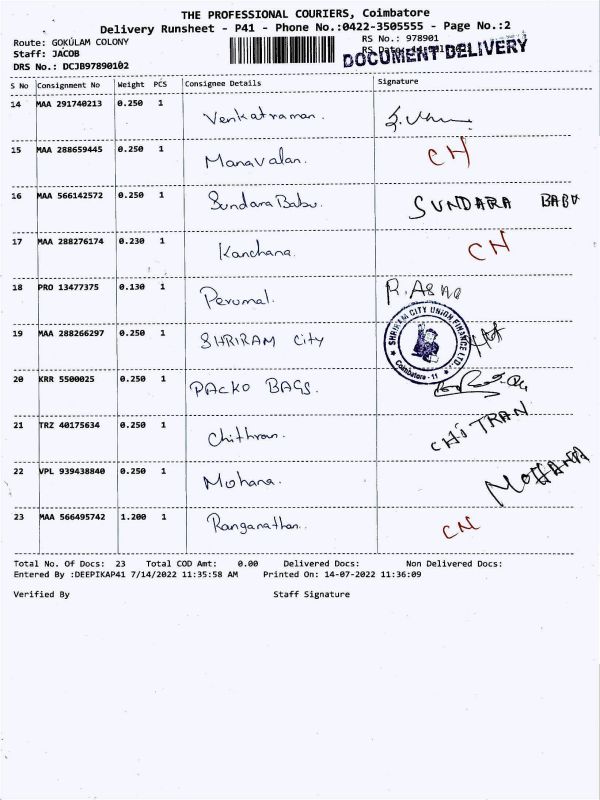 THE PROFESSIONAL COURIERS, Coimbatore
Delivery Runsheet - P41 - Phone No.:0422-3505555 - Page No.:2
Route: GOKULAM COLONY RS No.: 978901
Staff: JACOB RS Date:
DOCUMENT DELIVERY
DRS No.: DCJB97890102
S No Consignment No Weight PCS Consignee Details Signature
14 MAA 291740213 0.250 1 Venkatraman.
15 MAA 288659445 0.250 1 Manavalan. CH
16 MAA 566142572 0.250 1 Sundara Babu. SUNDARA BABU
17 MAA 288276174 0.230 1 Kanchana. CH
18 PRO 13477375 0.130 1 Perumal.
19 MAA 288266297 0.250 1 SHRIRAM City SHRIRAM CITY UNION FINANCE LTD. Coimbatore - 11
20 KRR 5500025 0.250 1 PACKO BAGS.
21 TRZ 40175634 0.250 1 Chithran. CHiTRAN
22 VPL 939438840 0.250 1 Mohana. MOHANA
23 MAA 566495742 1.200 1 Ranganathan. CN
Total No. Of Docs: 23 Total COD Amt: 0.00 Delivered Docs: Non Delivered Docs:
Entered By :DEEPIKAP41 7/14/2022 11:35:58 AM Printed On: 14-07-2022 11:36:09
Verified By Staff Signature